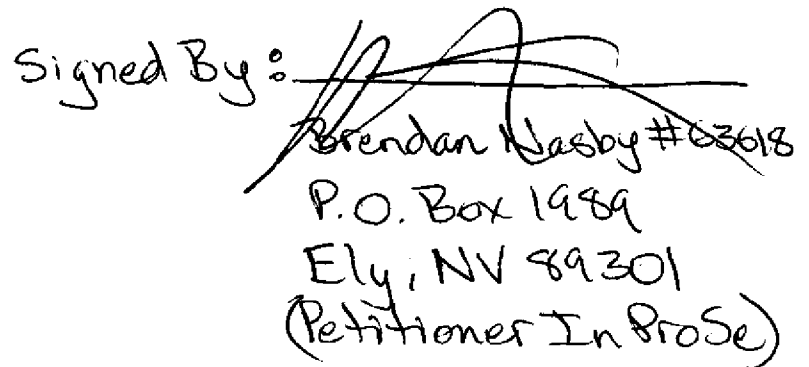 Signed By:
Brendan Nasby #63618
P.O. Box 1989
Ely, NV 89301
(Petitioner In ProSe)